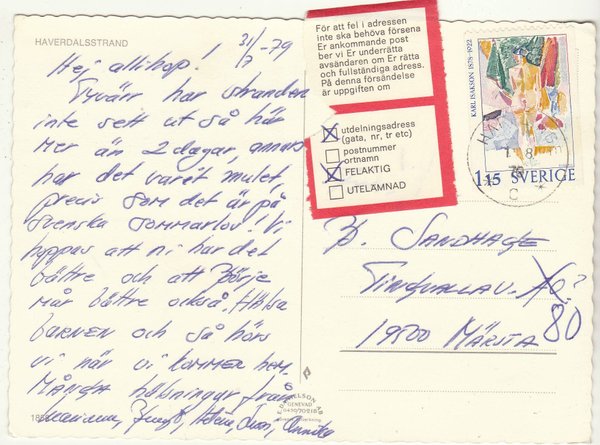 HAVERDALSSTRAND
31/7 -79
Hej allihop!
Tyvärr har stranden
inte sett ut så här
mer än 2 dagar, annars
har det varit mulet,
precis som det är på
svenska sommarlov! Vi
hoppas att ni har det
bättre och att Börje
mår bättre också. Hälsa
BARNEN och så hörs
vi när vi KOMMER hem.
MÅNGA hälsningar från
Marianne, Bengt,
För att fel i adressen
inte ska behöva försena
Er ankommande post
ber vi Er underrätta
avsändaren om Er rätta
och fullständiga adress.
På denna försändelse
är uppgiften om
utdelningsadress
(gata, nr, tr etc)
postnummer
ortnamn
FELAKTIG
UTELÄMNAD
KARL ISAKSON 1878-1922
1.15 SVERIGE
B. SANDHAGE
TINGVALLAV. 40?
80
19500 MÄRSTA
GENEVAD